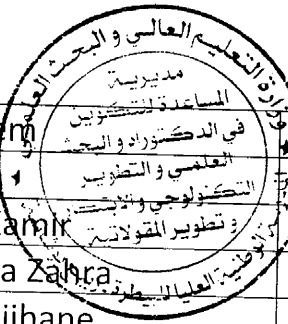 وزارة التعليم العالي و البحث العلمي
مديرية
المساعدة للتكوين
في الدكتوراه و البحث
العلمي و التطوير
التكنولوجي و الابتكار
و تطوير المقولاتية
الوطنية العليا للبيطرة
em
amir
a Zahra
jihane